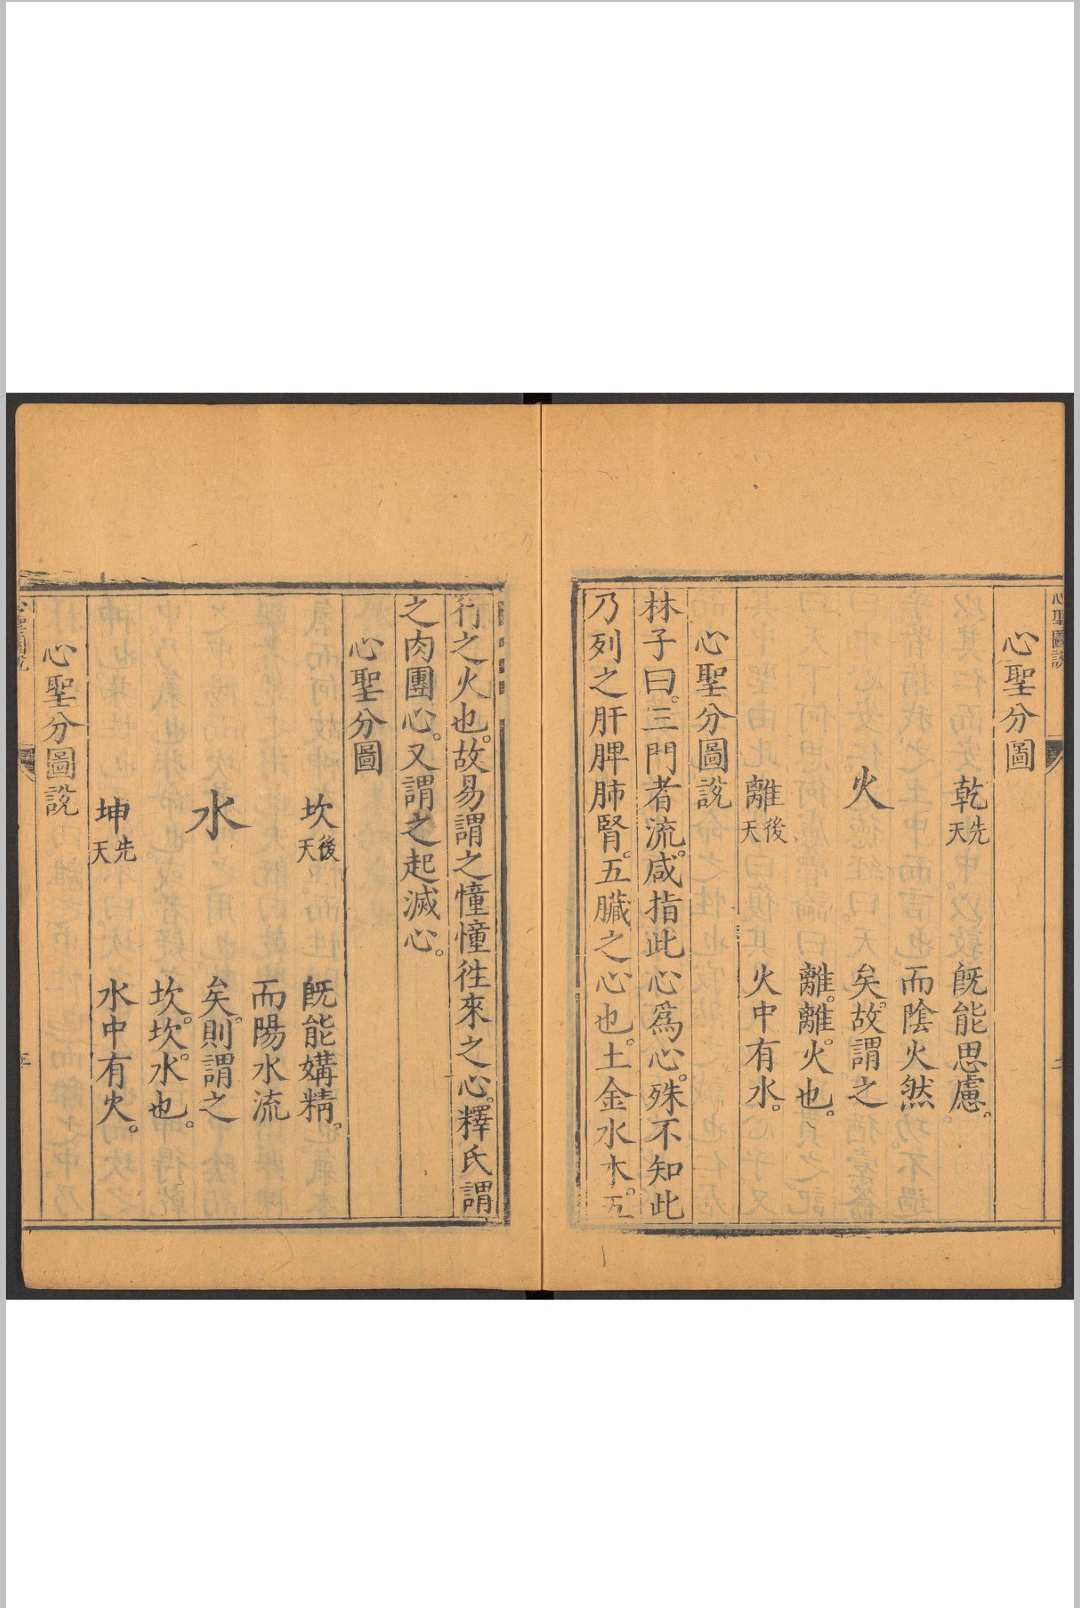 心聖圖說
心聖分圖
乾先天
既能思慮。
而陰火然
火
矣。故謂之
離。離。火也。
離後天
火中有水。
心聖分圖說
林子曰。三門者流。咸指此心爲心。殊不知此
乃列之肝脾肺腎。五臟之心也。土金水木。五
行之火也。故易謂之憧憧往來之心。釋氏謂
之肉團心。又謂之起滅心。
心聖分圖
坎後天
既能媾精。
而陽水流
水
矣。則謂之
坎。坎。水也。
坤先天
水中有火。
心聖分圖說
心聖圖說